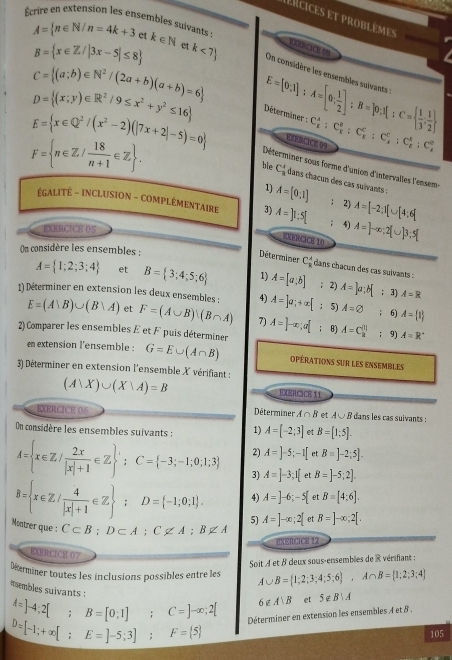 ERCICES ET PROBLÈMES
Écrire en extension les ensembles suivants :
A = {n ∈ ℕ / n = 4k + 3 et k ∈ ℕ et k < 7}
B = {x ∈ ℤ / |3x − 5| ≤ 8}
C = {(a ; b) ∈ ℕ² / (2a + b)(a + b) = 6}
D = {(x ; y) ∈ ℝ² / 9 ≤ x² + y² ≤ 16}
E = {x ∈ ℚ² / (x² − 2)(|7x + 2| − 5) = 0}
F = {n ∈ ℤ / 18/(n + 1) ∈ ℤ}.
ÉGALITÉ - INCLUSION - COMPLÉMENTAIRE
EXERCICE 05
On considère les ensembles :
A = {1 ; 2 ; 3 ; 4} et B = {3 ; 4 ; 5 ; 6}
1) Déterminer en extension les deux ensembles :
E = (A \ B) ∪ (B \ A) et F = (A ∪ B) \ (B ∩ A)
2) Comparer les ensembles E et F puis déterminer
en extension l'ensemble : G = E ∪ (A ∩ B)
3) Déterminer en extension l'ensemble X vérifiant :
(A \ X) ∪ (X \ A) = B
EXERCICE 06
On considère les ensembles suivants :
A = {x ∈ ℤ / 2x/(|x| + 1) ∈ ℤ} ; C = {−3 ; −1 ; 0 ; 1 ; 3}
B = {x ∈ ℤ / 4/(|x| + 1) ∈ ℤ} ; D = {−1 ; 0 ; 1}.
Montrer que : C ⊂ B ; D ⊂ A ; C ⊄ A ; B ⊄ A
EXERCICE 07
Déterminer toutes les inclusions possibles entre les
ensembles suivants :
A = ]−4 ; 2[ ; B = [0 ; 1] ; C = ]−∞ ; 2[
D = [−1 ; +∞[ ; E = ]−5 ; 3] ; F = {5}
EXERCICE 08
On considère les ensembles suivants :
E = [0 ; 1] ; A = [0 ; 1/2] ; B = ]0 ; 1[ ; C = {1/3 ; 1/2}
Déterminer :
EXERCICE 09
Déterminer sous forme d'union d'intervalles l'ensem-
ble C dans chacun des cas suivants :
1) A = [0 ; 1] ; 2) A = [−2 ; 1[ ∪ [4 ; 6[
3) A = ]1 ; 5[ ; 4) A = ]−∞ ; 2[ ∪ ]3 ; 5[
EXERCICE 10
Déterminer C dans chacun des cas suivants :
1) A = [a ; b] ; 2) A = ]a ; b[ ; 3) A = ℝ
4) A = ]a ; +∞[ ; 5) A = ∅ ; 6) A = {1}
7) A = ]−∞ ; a[ ; 8) A = C ; 9) A = ℝ
OPÉRATIONS SUR LES ENSEMBLES
EXERCICE 11
Déterminer A ∩ B et A ∪ B dans les cas suivants :
1) A = [−2 ; 3] et B = [1 ; 5].
2) A = ]−5 ; −1[ et B = ]−2 ; 5].
3) A = ]−3 ; 1[ et B = ]−5 ; 2].
4) A = ]−6 ; −5[ et B = [4 ; 6].
5) A = ]−∞ ; 2[ et B = ]−∞ ; 2[.
EXERCICE 12
Soit A et B deux sous-ensembles de ℝ vérifiant :
A ∪ B = {1 ; 2 ; 3 ; 4 ; 5 ; 6} , A ∩ B = {1 ; 2 ; 3 ; 4}
6 ∉ A \ B et 5 ∉ B \ A
Déterminer en extension les ensembles A et B.
105